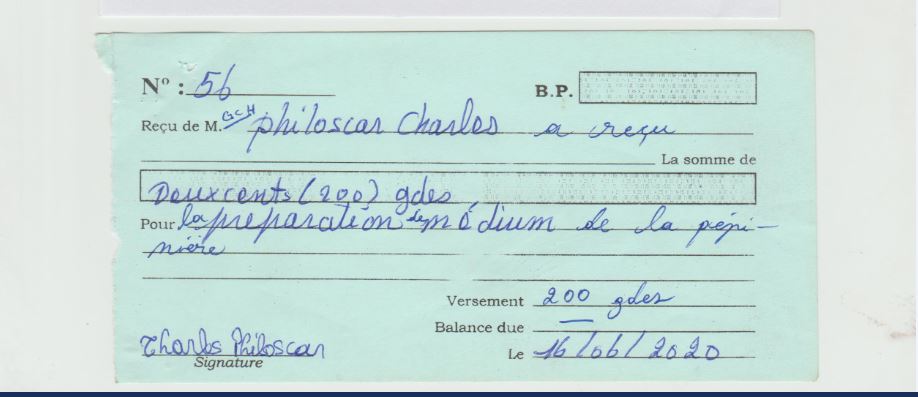 Nº : 56
B.P.
Reçu de M. GCH philoscar Charles a reçu
La somme de
Deuxcents (200) gdes
Pour la préparation de médium de la pépi-
nière
Versement 200 gdes
Balance due —
Charles Philoscar
Signature
Le 16/06/2020